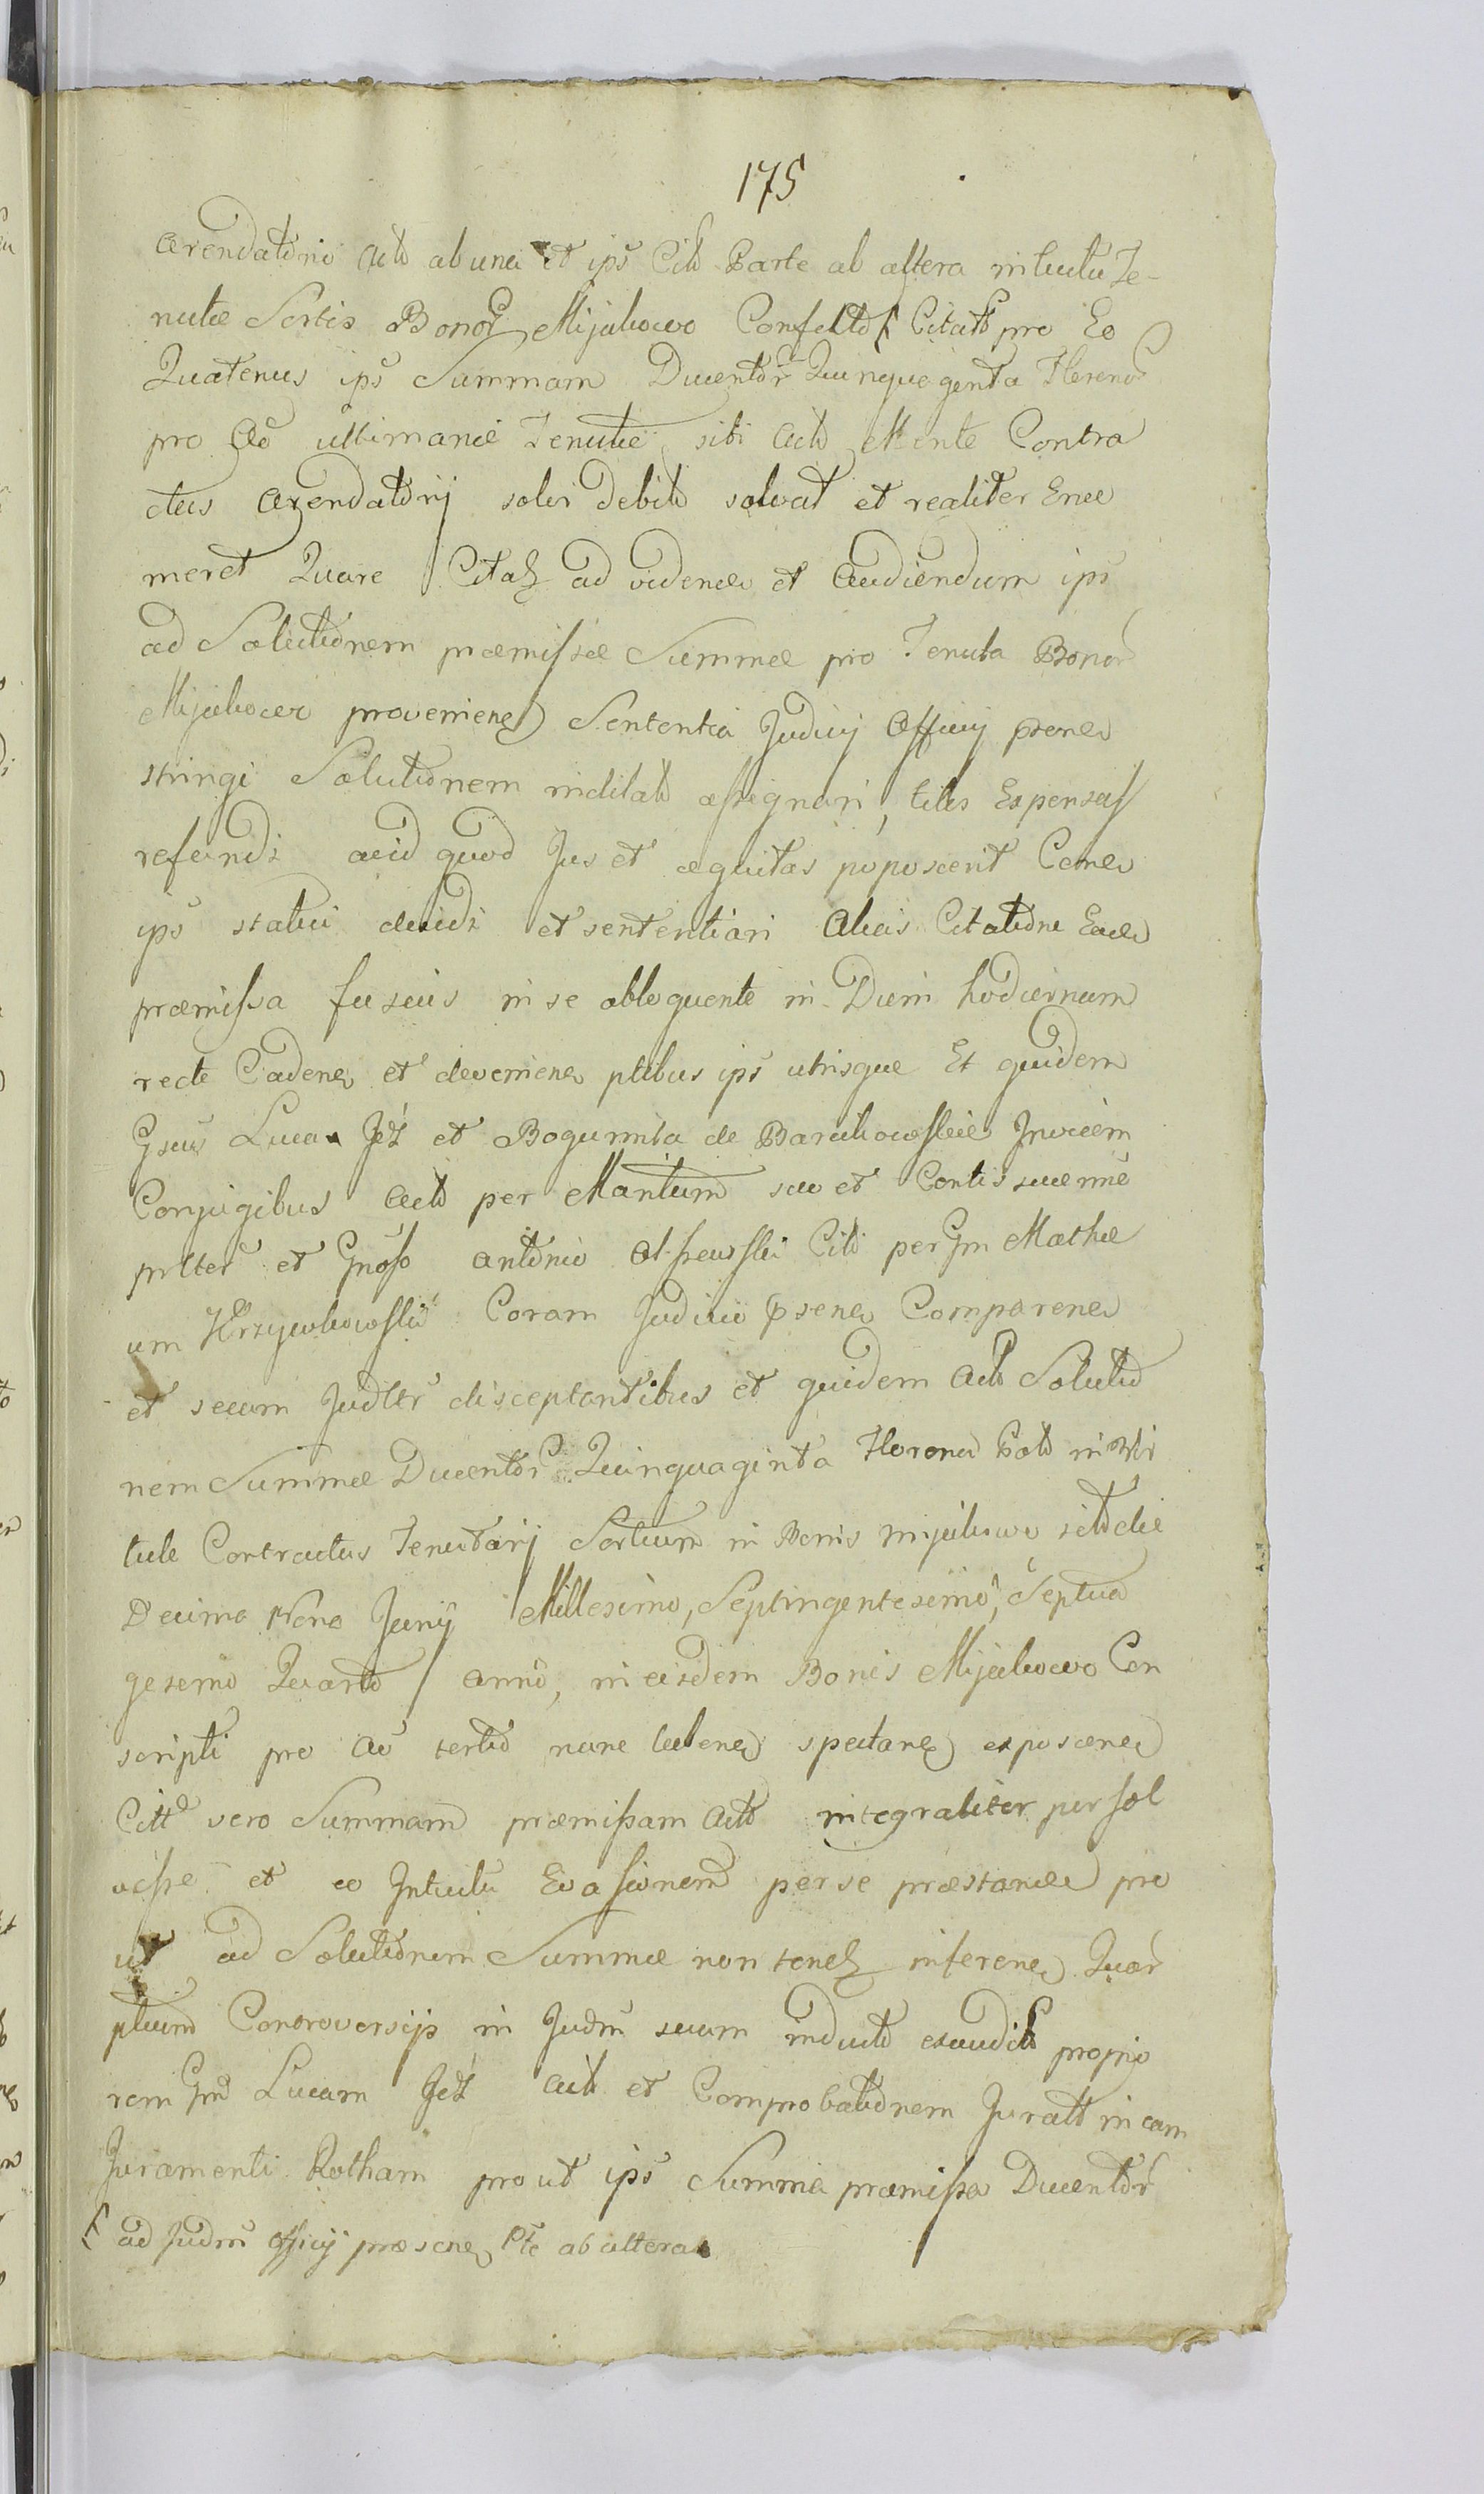 175
Arendatorio Acto ab una et ips Cito Parte ab altera intuitu Te-
nutæ Sortis Bonor Mijakowo Confecto Citato pro Eo
Quatenus ips Summam Ducentor Quinquaginta Florenor
pro Ao ultimariæ Tenutæ sibi Acto Mente Contra
ctus Arendatorij solvi Debito solvat et realiter Enu
meret Quare Citat ad videnda et Audiendum ips
ad Solutionem præmissæ Summæ pro Tenuta Bonor
Mijakowo provenien Sententia Judicij Officij præsen
stringi Solutionem indilato assignari, litis Expensas
refundi ac id quod Jus et æquitas poposcerit Cern
ips statui decidi et sententiari Alias Citatione Ead
præmissa fusius in se obloquente in Diem hodiernum
recte Caden et devenien ptibus ips utrisque Et quidem
Gsus Luca Jeż et Bogumiła de Barcikowskie Invicem
Conjugibus Acto per Maritum suo et Contis suæ nne
pnlter et Gnoso Antonio Olszewski Cito per Gm Mathæ
um Krzywkowski Coram Judicio præsen Comparen
et secum Judltr disceptantibus et quidem Acto Solutio
nem Summæ Ducentor Quinquaginta Floren Pol in Vir
tute Contractus Tenutarij Sortium in Bonis Mijakowo sito die
Decima Nona Junij Millesimo, Septingentesimo, Septua
gesimo Quarto Anno, in eisdem Bonis Mijakowo Con
scripti pro Ao tertio nunc laben spectan exposcen
Citto vero Summam præmissam Acto integraliter persol
visse et eo Intuitu Evasionem per se præstanda pro
ut ad Solutionem Summæ non tenet inferen Quar
ptium Controversijs in Judm suum inducto exaudito propio
rem Gm Lucam Jeż Acto et Comprobationem Juratto in eam
Juramenti Rotham prout ips Summa præmissa Ducentor
ad Judm Officij præsen Pte ab altera